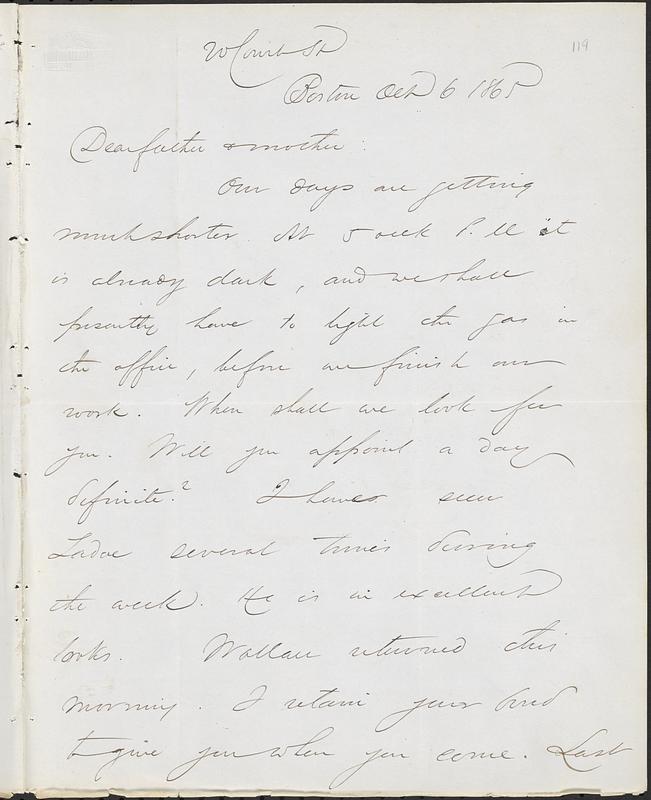 20 Court St
119
Boston Oct 6 1865
Dear father & mother:
Our days are getting
much shorter. At 5 oclk P.M it
is already dark, and we shall
presently have to light the gas in
the office, before we finish our
work. When shall we look for
you. Will you appoint a day
definite? I have seen
several times during
the week. He is in excellent
looks. Wallace returned this
morning. I retain your bond
to give you when you come. Last